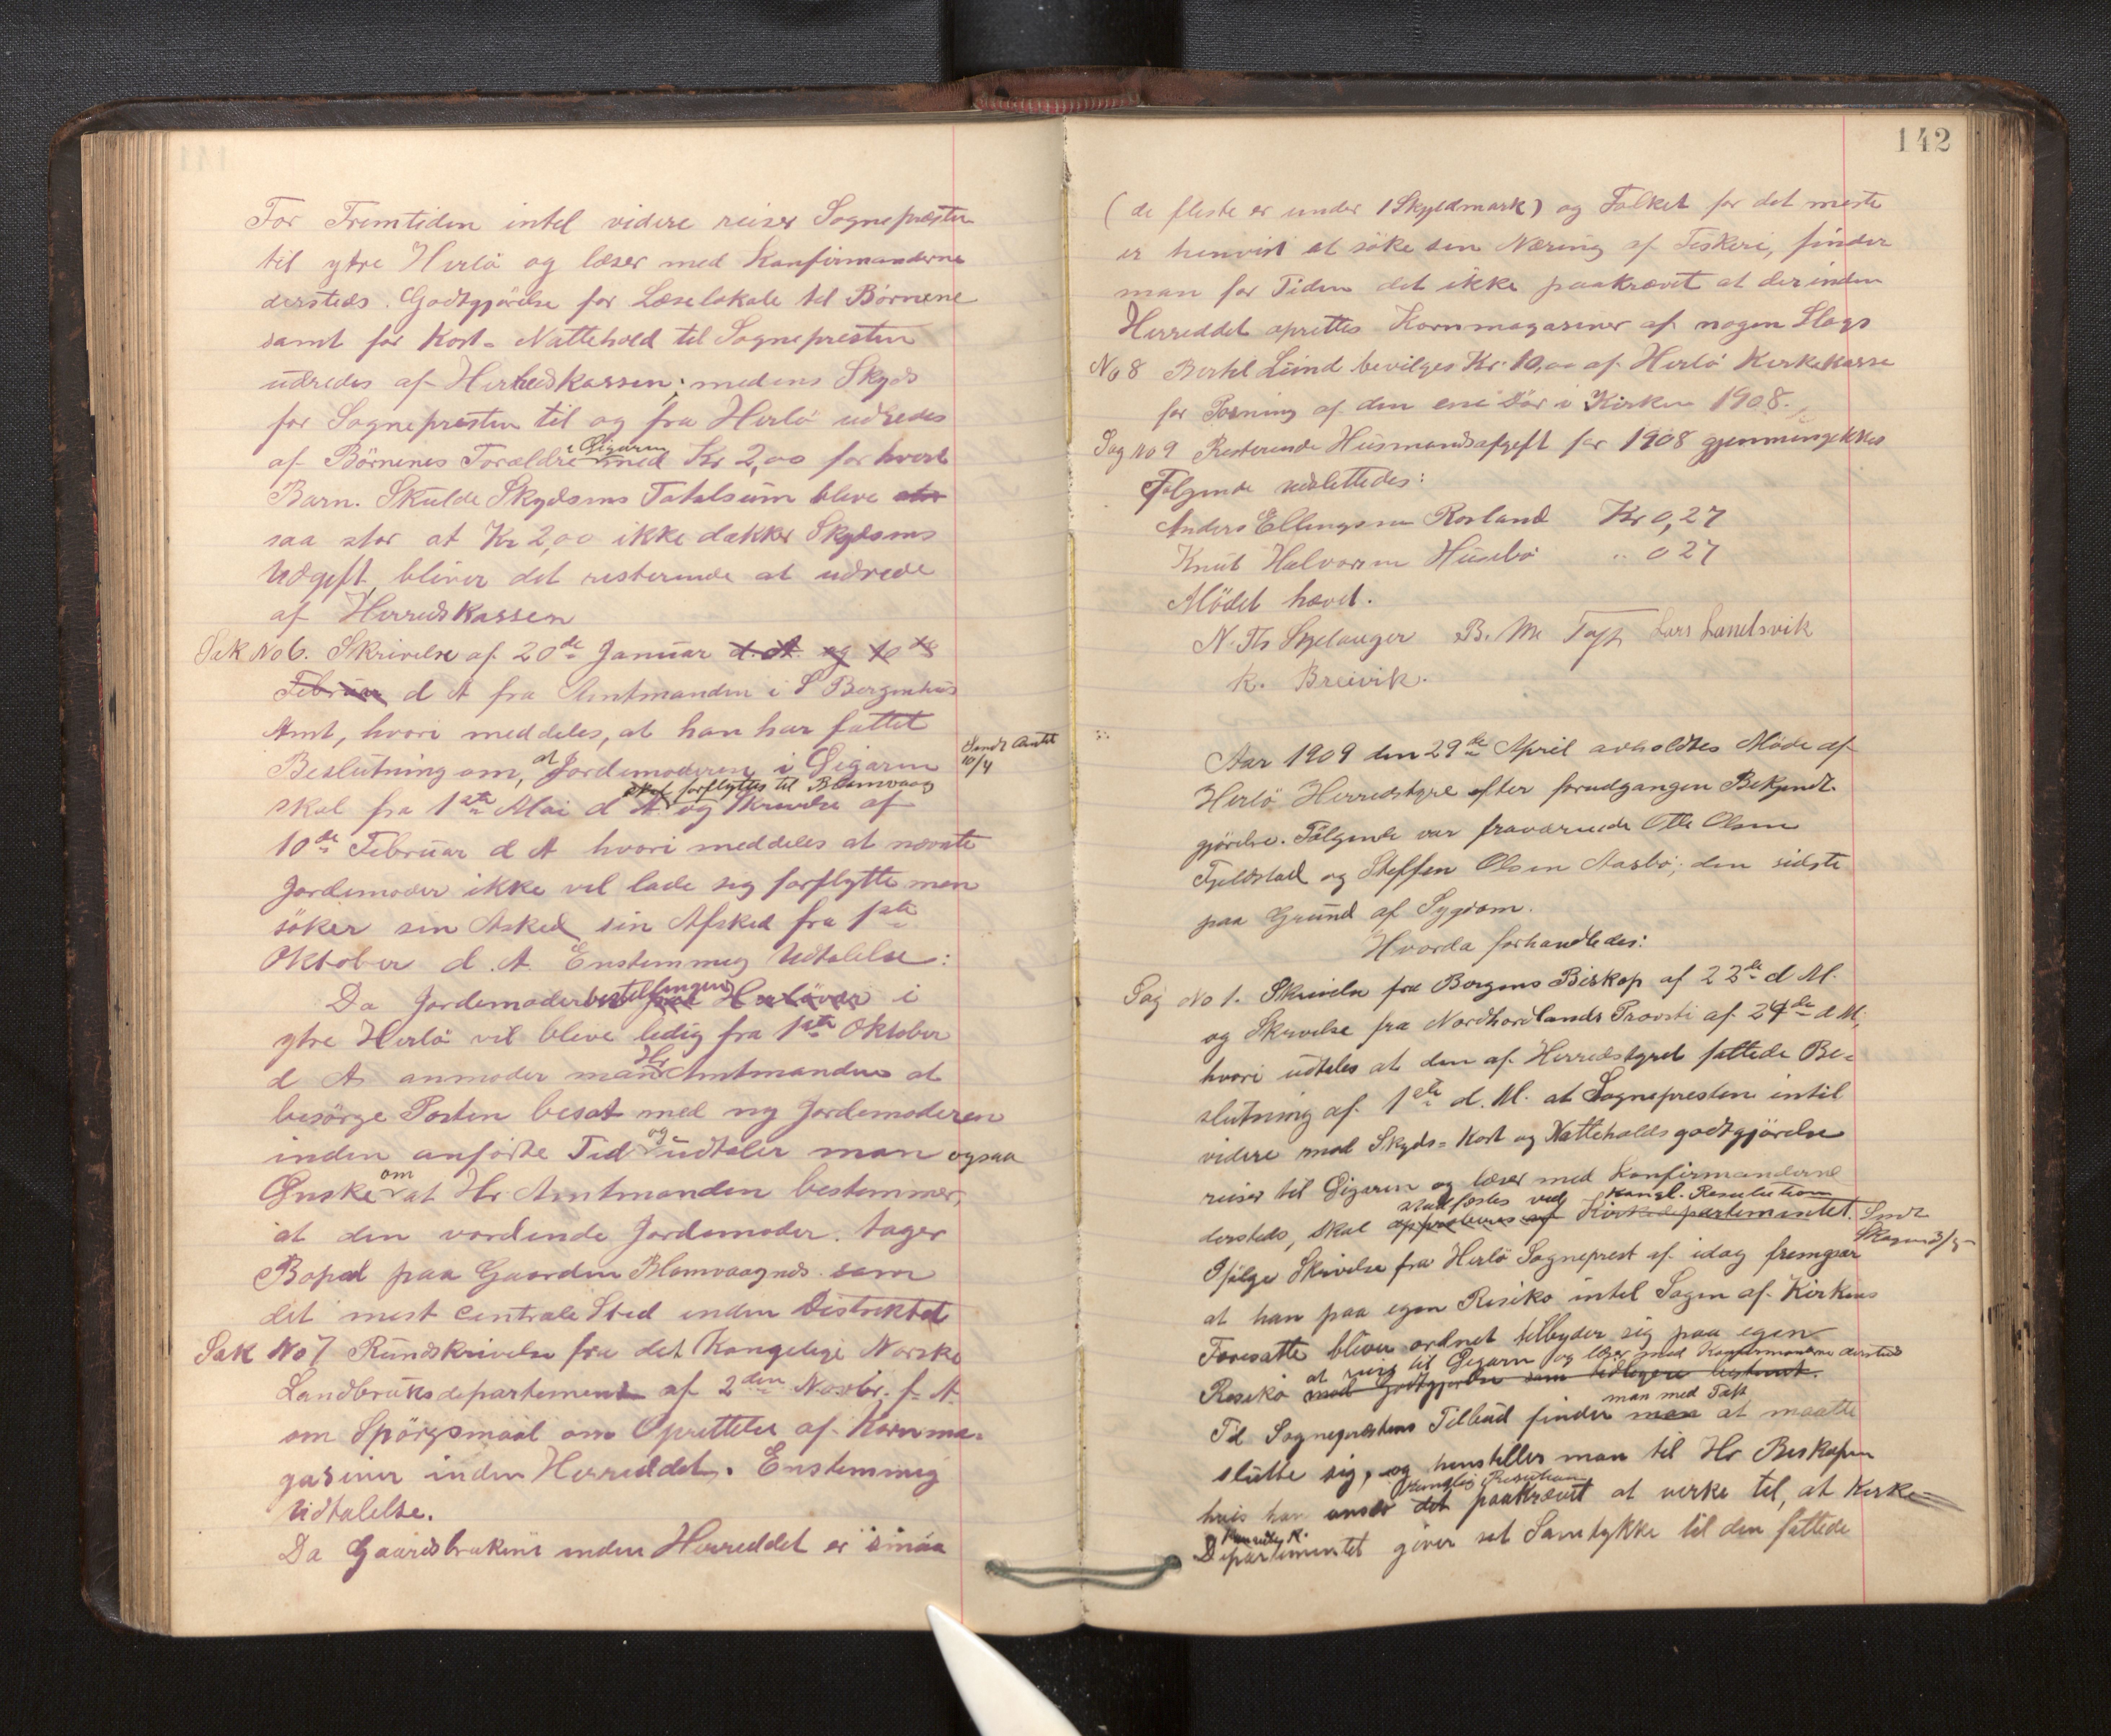 For Fremtiden intil videre reiser Sognepresten
til ytre Herlö og læser med Konfirmanderne
dersteds. Godtgjörelse for Læselokale til Börnene
samt for Kost- Nattehold til Sognepresten
udredes af Herredskassen; medens Skyds
for Sognepresten til og fra Herlö udredes
af Börnenes Forældre i Gigaren med Kr 2,00 for hvert
Barn. Skulde Skydsens Totalsum bleve stor
saa stor at Kr 2,00 ikke dækker Skydsens
Udgift, bliver det resterende at udrede
af Herredskassen
Sak No 6. Skrivelse af 20de Januar d. A. og 10de
Februar d A fra Amtmanden i S Bergenhus
Amt, hvori meddeles, at han har fattet
Beslutning om, at Jordemoderen i Gigaren
Sendt Amtet 10/4
skal forflyttes til Blomvaag
skal fra 1ste Mai d A. og Skrivelse af
10de Februar d A hvori meddeles at nævnte
Jordemoder ikke vil lade sig forflytte men
söker sin Asked sin Afsked fra 1ste
Oktober d. A. Enstemmig Udtalelse:
Da Jordemoderbestillingen paa Herlövær i
ytre Herlö vil bleve ledig fra 1ste Oktober
d A anmoder man Hr Amtmanden at
besörge Posten besat med ny Jordemoderen
inden anförte Tid og udtaler man ogsaa
Önske om at Hr Amtmanden bestemmer,
at den vordende Jordemoder tager
Bopæl paa Gaarden Blomvaagnes som
det mest centrale Sted inden Distriktet
Sak No 7 Rundskrivelse fra det Kongelige Norske
Landbruksdepartement af 2den Novbr. f. A.
om Spörgsmaal om Oprettelse af Kornma-
gasiner inden Herreddet. Enstemmig
Udtalelse.
Da Gaardsbrukene inden Herreddet er smaa
142
(de fleste er under 1 Skyldmark) og Folket for det meste
er henvist at söke sin Næring af Fiskeri, finder
man for Tiden det ikke paakrævet at der inden
Herreddet oprettes Kornmagasiner af nogen Slags
No 8 Bertel Lund bevilges Kr. 10,00 af Herlö Kirkekasse
for Pasning af den ene Dör i Kirken 1908.
Sag No 9 Resterende Husmandsafgift for 1908 gjennemgikkes
Fölgende udslettedes:
Anders Ellingsen Rosland Kr 0,27
Knut Halvorsen Husebö " 0 27
Mödet hævet.
N. Ths Skjelanger B. M. Toft Lars Landsvik
K. Breivik.
Aar 1909 den 29de April avholdtes Möde af
Herlö Herredstyre efter forudgangen Bekjendt-
gjörelse. Fölgende var fraværende Otto Olsen
Fjeldstad og Steffen Olsen Aasbö; den sidste
paa Grund af Sygdom.
Hvorda forhandledes:
Sag No 1. Skrivelse fra Bergens Biskop af 23de d M.
og Skrivelse fra Nordhordlands Provsti af 24de d M,
hvori udtales at den af Herredstyret fattede Be-
slutning af 1ste d. M. at Sognepresten intil
videre mod Skyds- Kost og Natteholdsgodtgjörelse
reiser til Gigaren og læser med Konfirmanderne
stadfæstes ved Kongl. Resolution
dersteds, skal approberes af Kirkedepartementet. Sendt
Ifölge Skrivelse fra Herlö Sogneprest af idag fremgaar
at han paa egen Risiko intil Sagen af Kirkens
Foresatte bliver ordnet tilbyder sig paa egen
at reise til Gigaren og læse med Konfirmanderne dersteds
Resiko mod Godtgjörelse som tidligere bestemt.
man med Takk
Til Sogneprestens Tilbud finder man at maatte
slutte sig, og henstiller man til Hr Biskopen
Kongelig Resolution
hvis han anser det paakrævet at virke til, at Kirke-
Departementet giver sit Samtykke til den fattede